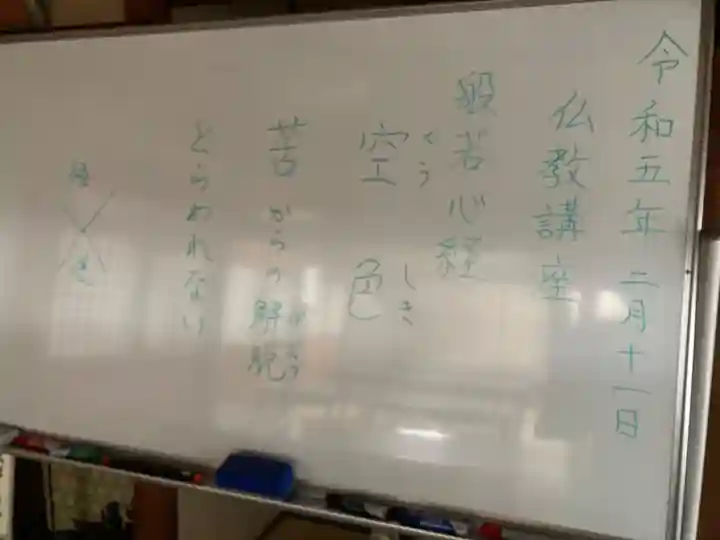 令和五年二月十一日
仏教講座
般若心経
くう しき
空 色
苦からの解脱
とらわれない